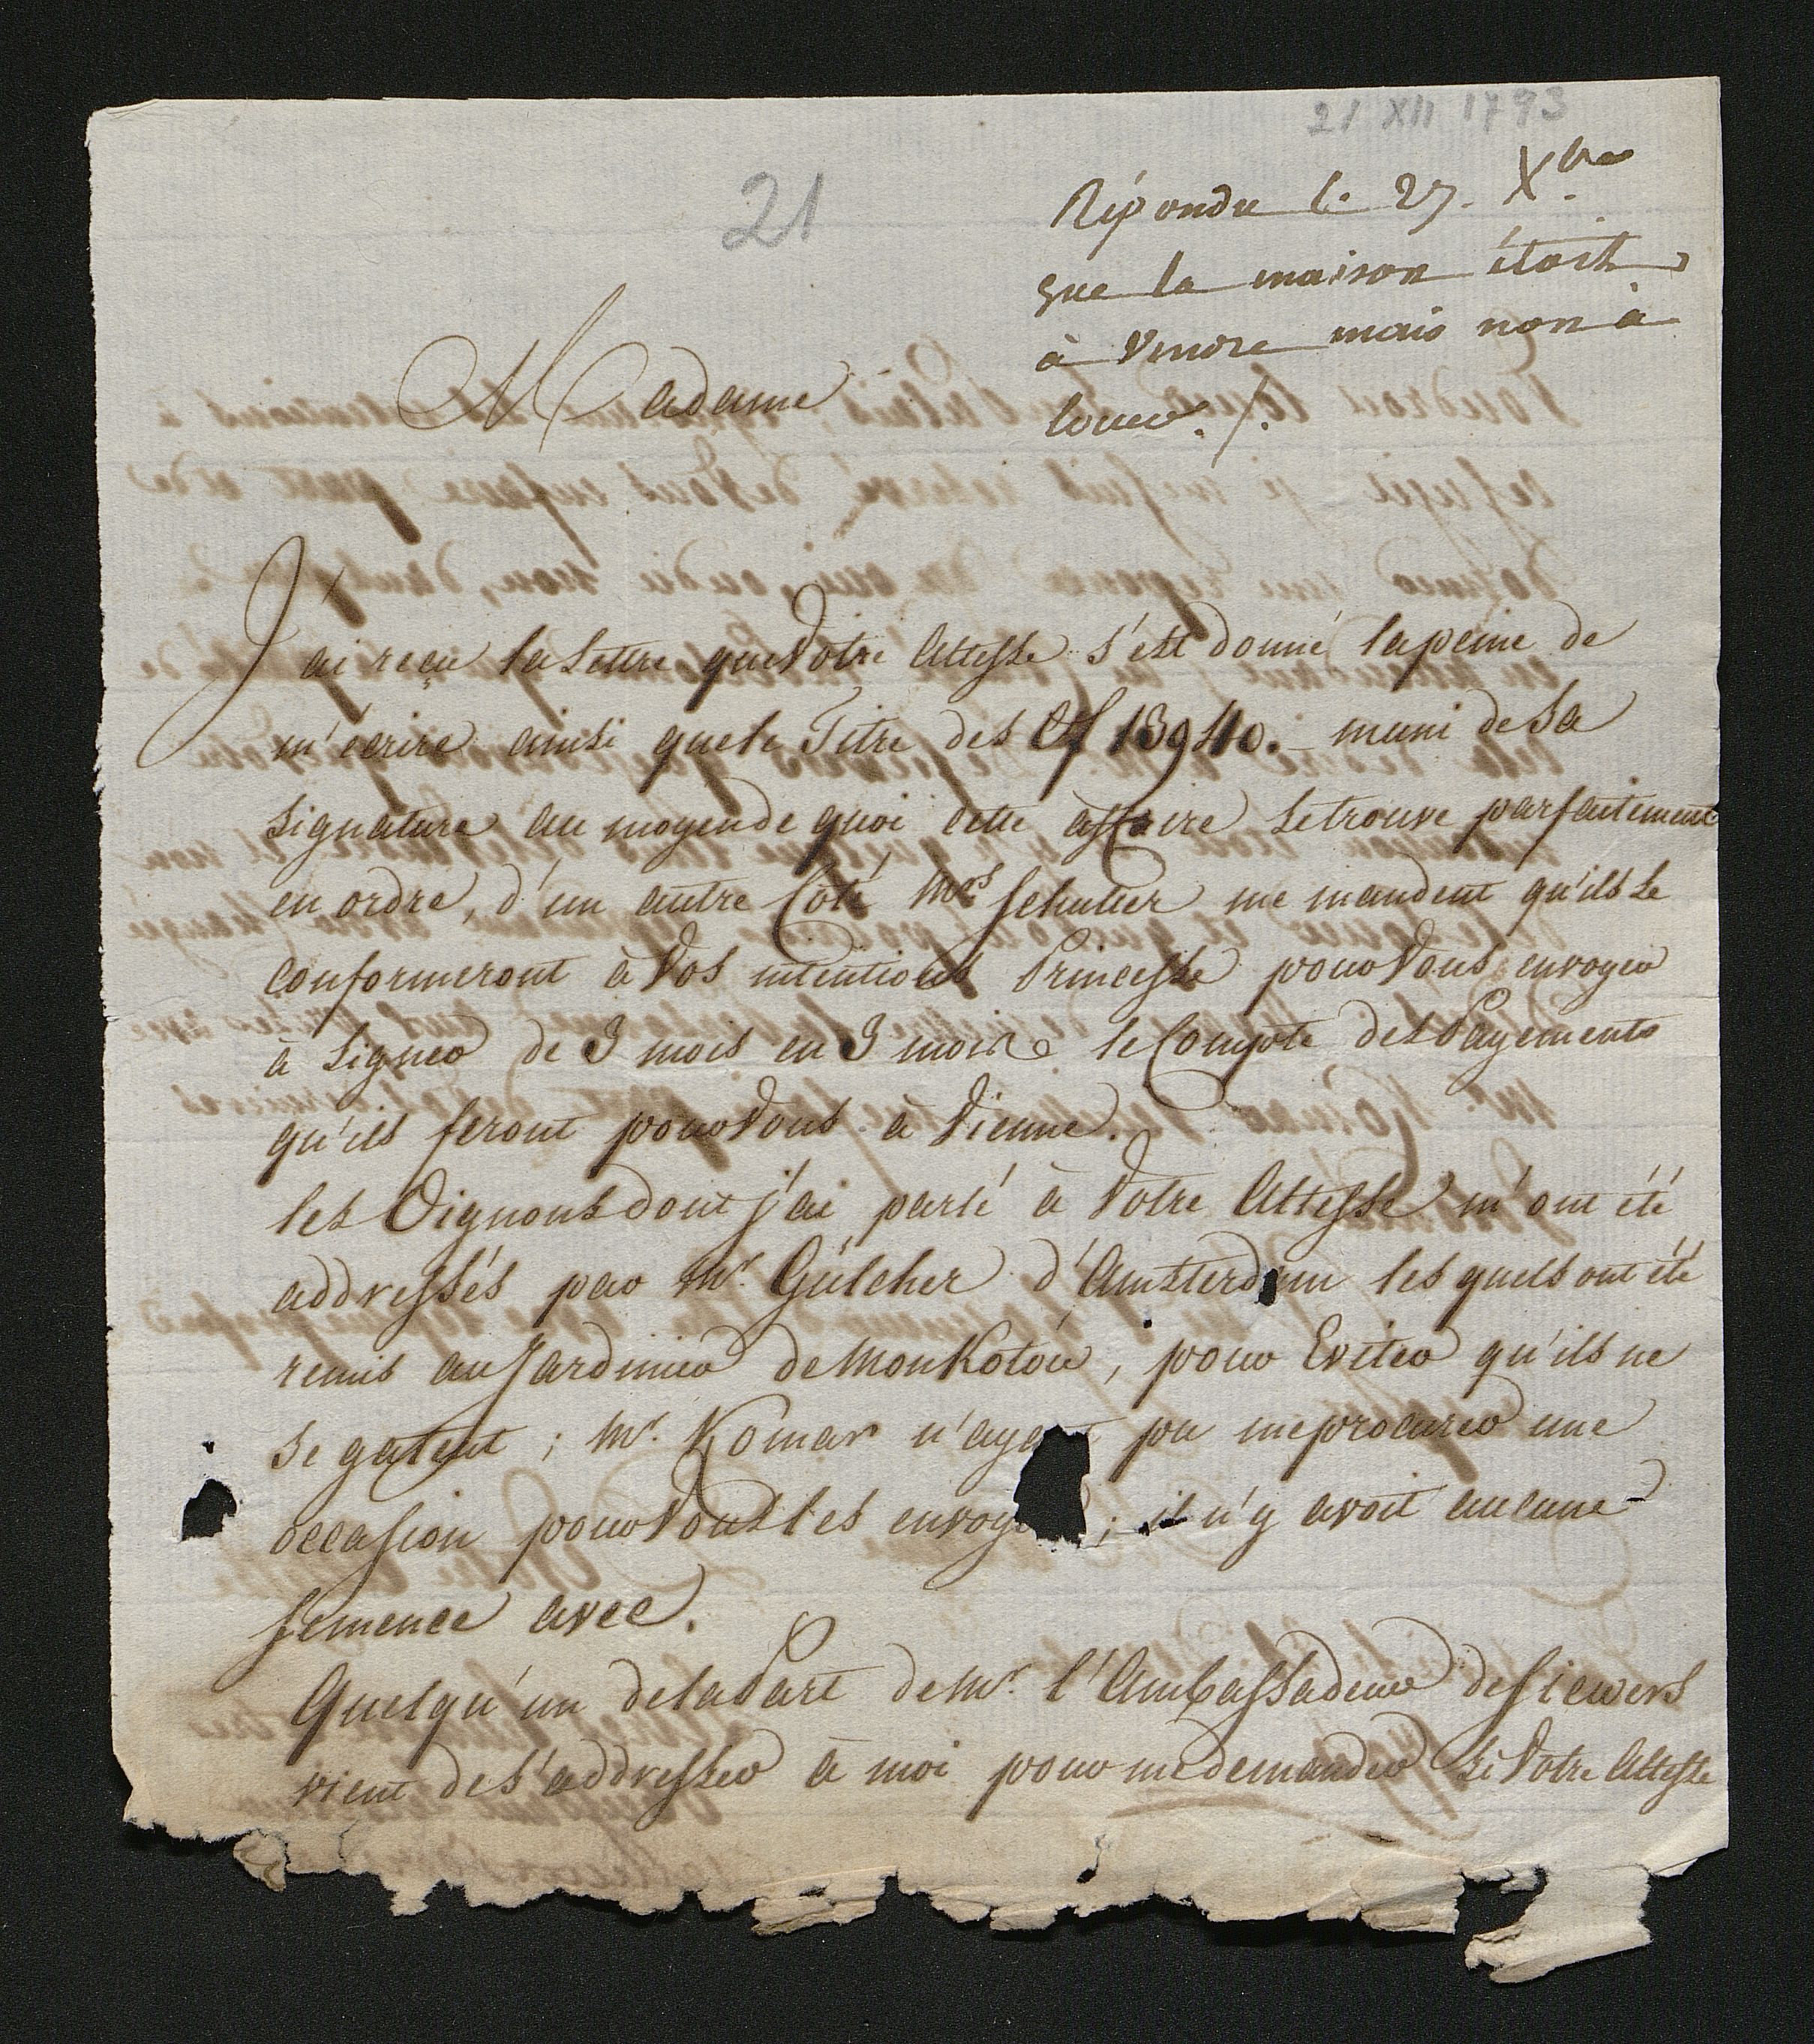 21 XII 1793
21
Répondu le 27. Xbre
que la maison étoit
à vendre mais non à
louer. /.
Madame
J'ai reçu la Lettre que Votre Altesse s'est donné la peine de
m'écrire ainsi que le Titre des 13940. muni de Sa
signature au moyen de quoi cette affaire se trouve parfaitement
en ordre, d'un autre Coté Mrs Schulter me mandent qu'ils se
conformeront à Vos intentions Princesse pour Vous envoyer
à signer de 3 mois en 3 mois le Compte des Payements
qu'ils feront pour Vous à Vienne.
les Oignons dont j'ai parlé à Votre Altesse m'ont été
addressés par Mr. Gülcher d'Amsterdam les quels ont été
remis au Jardinier de Monkotòw, pour Eviter qu'ils ne
se gatent ; Mr. Komar n'aya pu me procurer une
occasion pour Vous les envoye ; il n'y avoit aucune
semence avec.
Quelqu'un de la Part de Mr. l'Ambassadeur de Siewers
vient de s'addresser à moi pour me demander si Votre Altesse